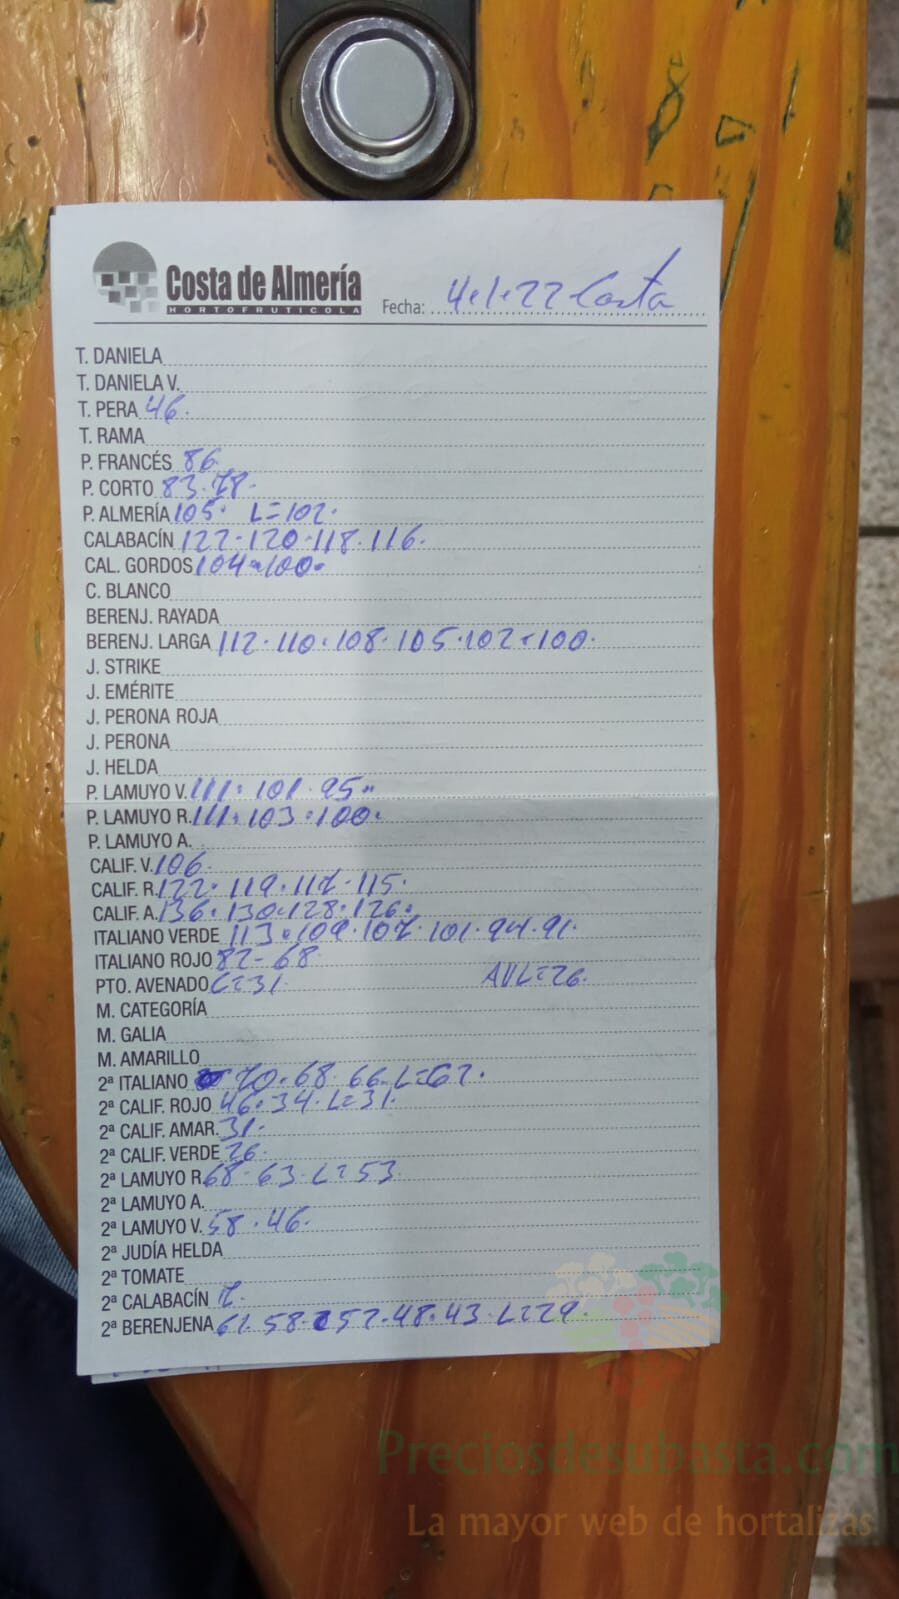 Costa de Almería
HORTOFRUTICOLA
Fecha: 4·1·22 Costa
T. DANIELA
T. DANIELA V.
T. PERA 46.
T. RAMA
P. FRANCÉS 86
P. CORTO 83·78·
P. ALMERÍA 105· L=102·
CALABACÍN 122·120·118·116·
CAL. GORDOS 104·100·
C. BLANCO
BERENJ. RAYADA
BERENJ. LARGA 112·110·108·105·102·100·
J. STRIKE
J. EMÉRITE
J. PERONA ROJA
J. PERONA
J. HELDA
P. LAMUYO V. 111·101·95··
P. LAMUYO R. 111·103·100·
P. LAMUYO A.
CALIF. V. 106
CALIF. R. 122·119·117·115·
CALIF. A. 136·130·128·126·
ITALIANO VERDE 113·109·107·101·94·91·
ITALIANO ROJO 82-68
PTO. AVENADO L=31· AVL=26·
M. CATEGORÍA
M. GALIA
M. AMARILLO
2ª ITALIANO 70·68·66·L=62·
2ª CALIF. ROJO 46·34·L=31·
2ª CALIF. AMAR. 31·
2ª CALIF. VERDE 26·
2ª LAMUYO R. 68·63·L=53
2ª LAMUYO A.
2ª LAMUYO V. 58·46·
2ª JUDÍA HELDA
2ª TOMATE
2ª CALABACÍN 7·
2ª BERENJENA 61·58·52·48·43·L=29·
Preciosdesubasta.com
La mayor web de hortalizas